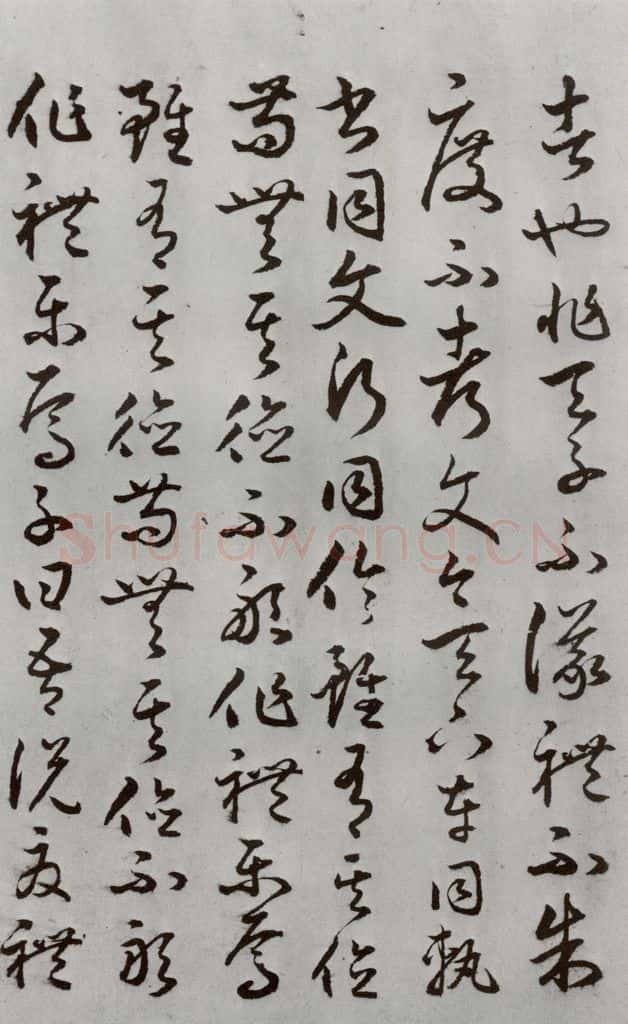 者也非天子不議禮不制
度不考文今天下車同軌
書同文行同倫雖有其位
苟無其德不敢作禮樂焉
雖有其德苟無其位不敢
作禮樂焉子曰吾説夏禮
Shufawang.CN